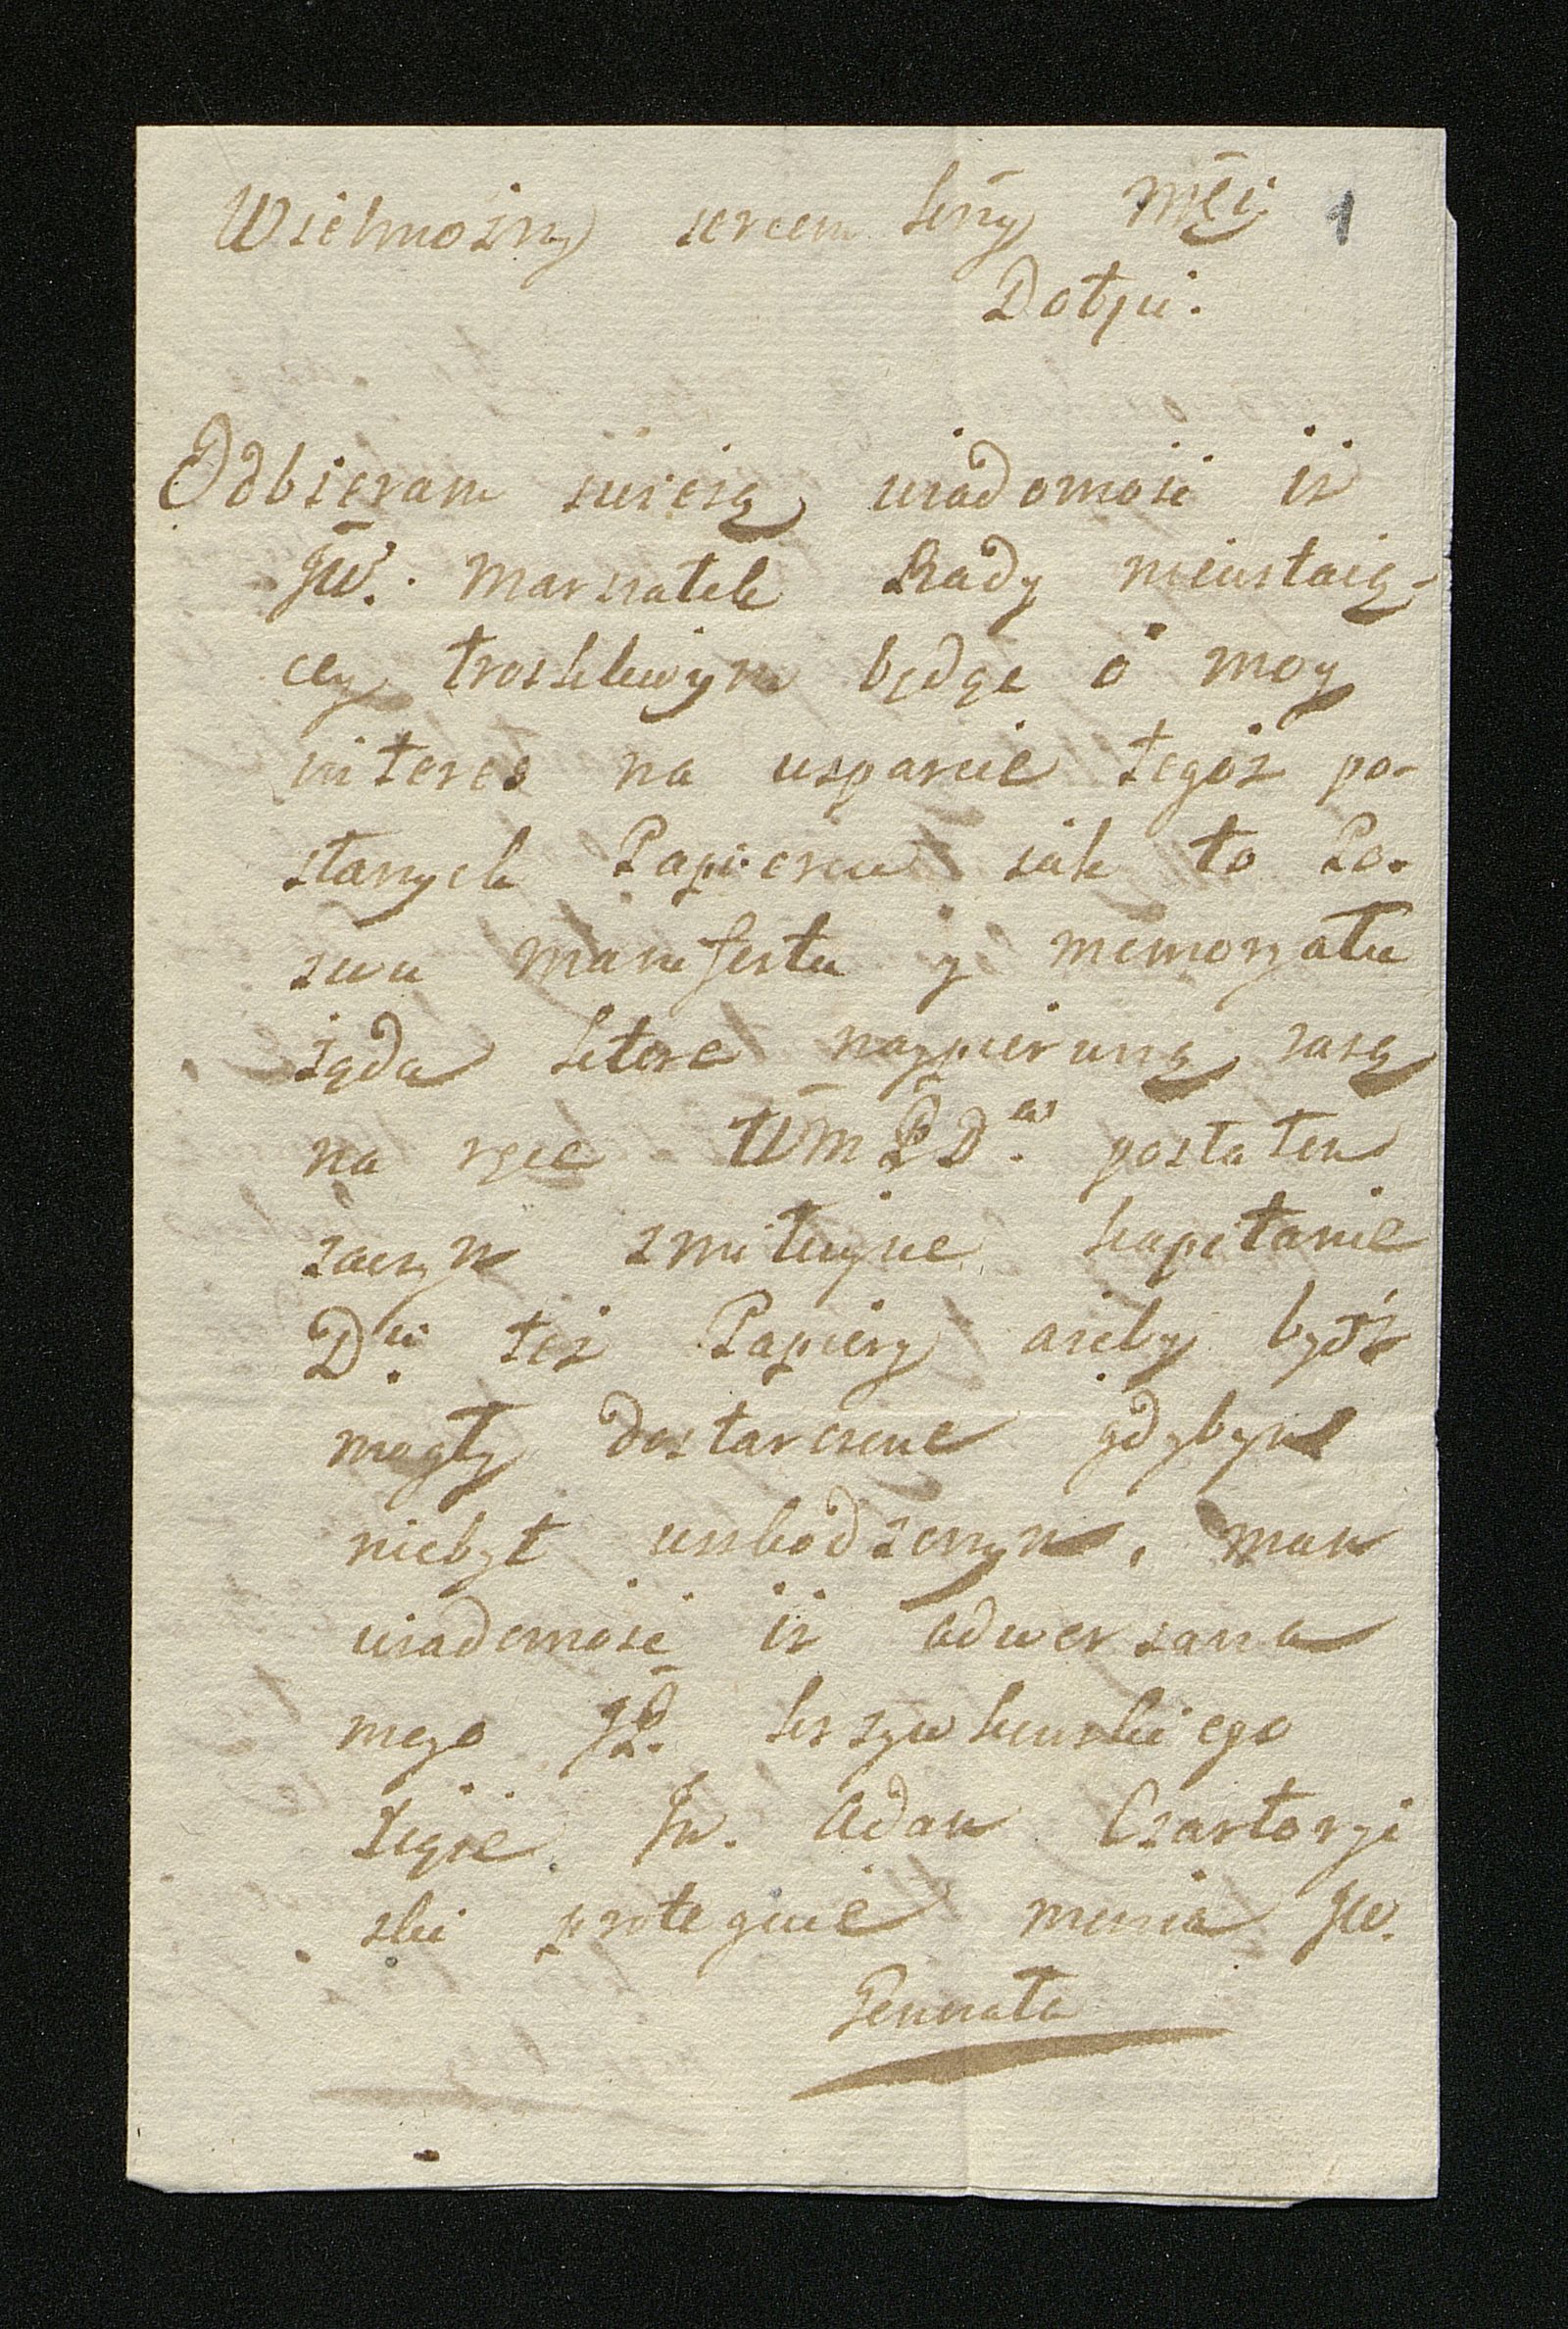 Wielmożny sercem kny Mci 1
Dobju.
Odbieram swieżą wiadomość iż
JW. Marszałek Rady nieustaią-
cey troskliwym będąc o moy
interes na wsparcie tegoż po-
słanych Papierow iak to Po-
zwu Manifestu y memoryału
żąda ktore naypierwszą
na ręce WM PD.a posłałem
zaczym zmiłuyże kapitanie
D.u też Papiery ażeby bydź
mogły dostarczone gdybym
niebył uszkodzonym, mam
wiadomość iż adwersarza
mego JP. Krzywkowskiego
Xiąże Jw. Adam Czartoryi
ski proteguie mnie JW.
Generała